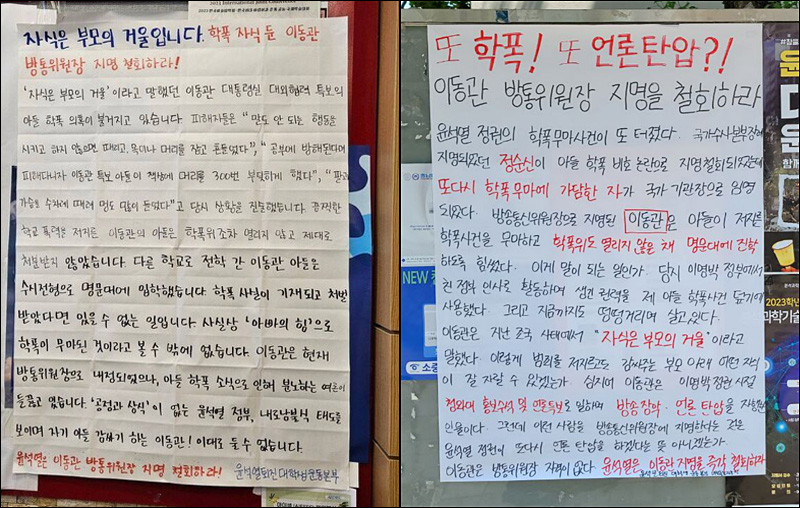 자식은 부모의 거울입니다. 학폭 자식 둔 이동관
방통위원장 지명 철회하라!
'자식은 부모의 거울'이라고 말했던 이동관 대통령실 대외협력 특보의
아들 학폭 의혹이 불거지고 있습니다. 피해자들은 "말도 안 되는 행동을
시키고 하지 않으면 때리고, 목이나 머리를 잡고 흔들었다", "공부에 방해된다며
피해다니자 이동관 특보 아들이 책상에 머리를 300번 부딪히게 했다",
가슴을 수차례 때려 멍도 많이 들었다"고 당시 상황을 진술했습니다. 끔찍한
학교 폭력을 저지른 이동관의 아들은 학폭위조차 열리지 않고 제대로
처벌받지 않았습니다. 다른 학교로 전학 간 이동관 아들은
수시전형으로 명문대에 입학했습니다. 학폭 사실이 기재되고 처벌
받았다면 있을 수 없는 일입니다. 사실상 '아빠의 힘'으로
학폭이 무마된 것이라고 볼 수 밖에 없습니다. 이동관은 현재
방통위원장으로 내정되었으나, 아들 학폭 소식으로 인해 분노하는 여론이
들끓고 있습니다. '공정과 상식'이 없는 윤석열 정부, 내로남불식 태도를
보이며 자기 아들 감싸기 하는 이동관! 이대로 둘 수 없습니다.
윤석열은 이동관 방통위원장 지명 철회하라! 윤석열퇴진 대학생운동본부
또 학폭! 또 언론탄압?!
이동관 방통위원장 지명을 철회하라
윤석열 정권의 학폭무마사건이 또 터졌다. 국가수사본부장에
지명되었던 정순신이 아들 학폭 비호 논란으로 지명철회되었는데
또다시 학폭무마에 가담한 자가 국가 기관장으로 임명
되었다. 방송통신위원장으로 지명된 이동관은 아들이 저지른
학폭사건을 무마하고 학폭위도 열리지 않은 채 명문대에 진학
하도록 힘썼다. 이게 말이 되는 일인가. 당시 이명박 정부에서
핵심 인사로 활동하며 생긴 권력을 제 아들 학폭사건 덮기에
사용했다. 그리고 지금까지도 떵떵거리며 살고있다.
이동관은 지난 조국 사태에서 "자식은 부모의 거울"이라고
말했다. 이렇게 범죄를 저지르고도 감싸주는 부모 아래 어떤 자식
이 잘 자랄 수 있겠는가. 심지어 이동관은 이명박 정권 시절
청와대 홍보수석 및 언론특보로 일하며 방송장악, 언론 탄압을 자행한
인물이다. 그런데 이런 사람을 방송통신위원장에 지명하다는 것은
윤석열 정권이 또다시 언론 탄압을 하겠다는 뜻 아니겠는가
이동관은 방통위원장 자격이 없다. 윤석열은 이동관 지명을 즉각 철회하라
NEW
2023학년
과학기술